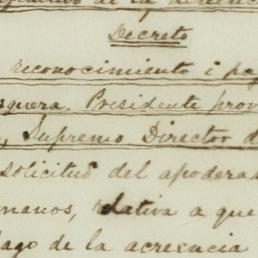 de la
Decreto
reconocimiento i pa
quera. Presidente prov
Supremo Director d
solicitud del apodera
manos, relativa a que
pago de la acreencia